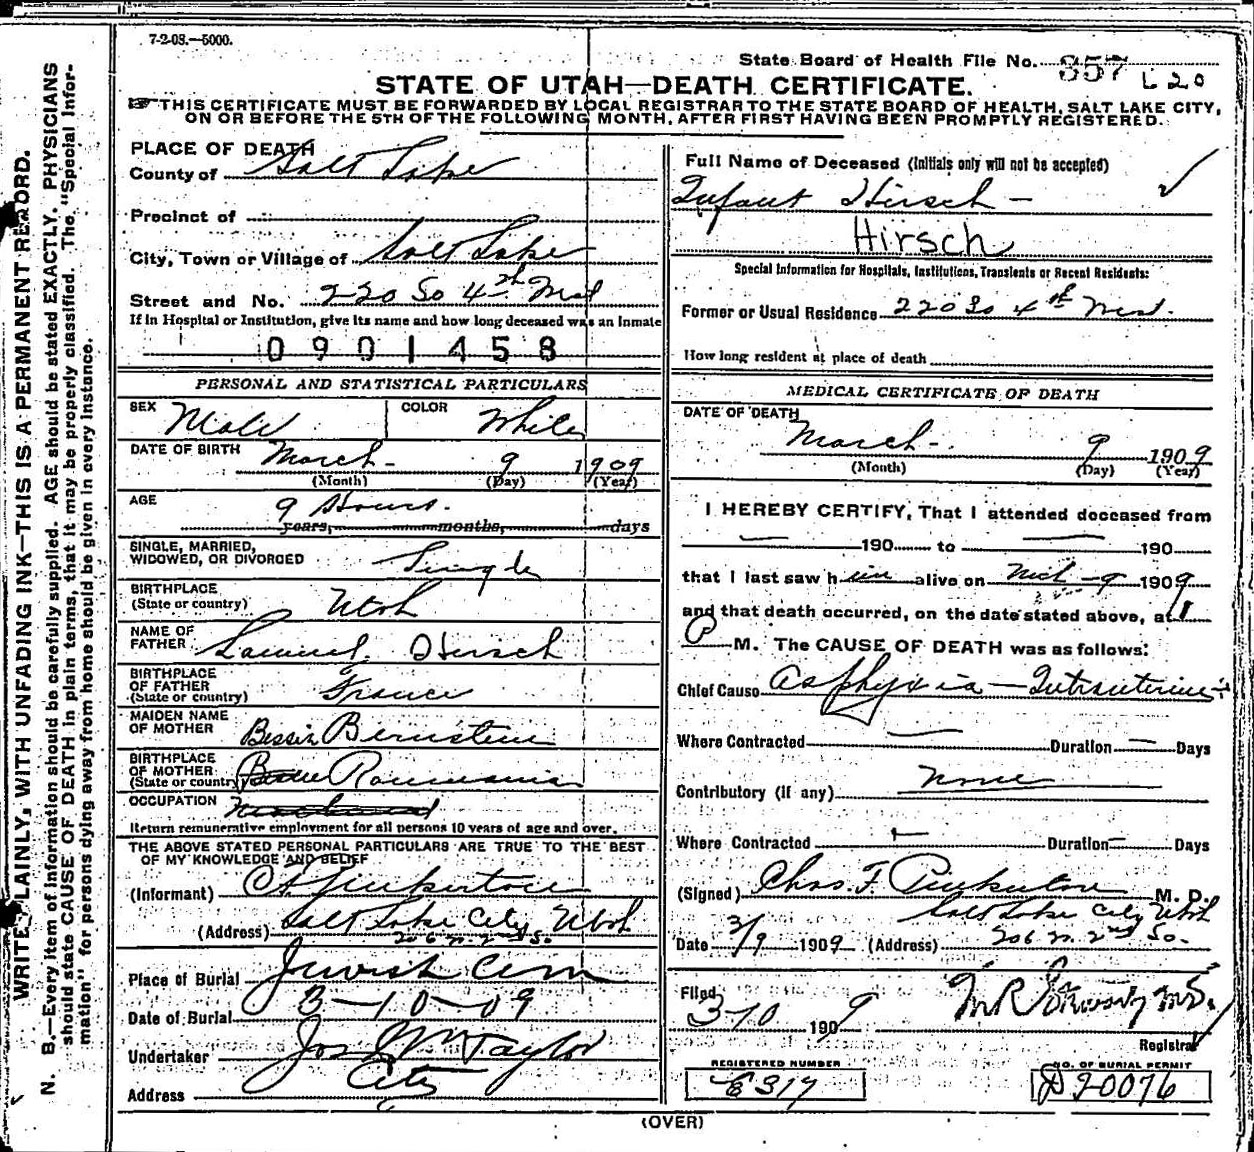 7-2-08.—5000.
State Board of Health File No. 357 L 20
STATE OF UTAH—DEATH CERTIFICATE.
THIS CERTIFICATE MUST BE FORWARDED BY LOCAL REGISTRAR TO THE STATE BOARD OF HEALTH, SALT LAKE CITY,
ON OR BEFORE THE 5TH OF THE FOLLOWING MONTH, AFTER FIRST HAVING BEEN PROMPTLY REGISTERED.
WRITE PLAINLY, WITH UNFADING INK—THIS IS A PERMANENT RECORD.
N. B.—Every item of information should be carefully supplied. AGE should be stated EXACTLY. PHYSICIANS
should state CAUSE OF DEATH in plain terms, that it may be properly classified. The "Special Infor-
mation" for persons dying away from home should be given in every instance.
PLACE OF DEATH
County of Salt Lake
Precinct of
City, Town or Village of Salt Lake
Street and No. 220 So 4th West
If in Hospital or Institution, give its name and how long deceased was an Inmate
0901458
PERSONAL AND STATISTICAL PARTICULARS
SEX Male COLOR White
DATE OF BIRTH March 9 1909
(Month) (Day) (Year)
AGE 9 Hours.
years, months, days
SINGLE, MARRIED,
WIDOWED, OR DIVORCED Single
BIRTHPLACE
(State or country) Utah
NAME OF
FATHER Samuel Hirsch
BIRTHPLACE
OF FATHER
(State or country) France
MAIDEN NAME
OF MOTHER Bessie Bernstein
BIRTHPLACE
OF MOTHER
(State or country) Roumania
OCCUPATION
Return remunerative employment for all persons 10 years of age and over.
THE ABOVE STATED PERSONAL PARTICULARS ARE TRUE TO THE BEST
OF MY KNOWLEDGE AND BELIEF
(Informant) C F Pinkerton
(Address) Salt Lake City Utah
206 n. 2nd So.
Place of Burial Jewish Cem
Date of Burial 3-10-09
Undertaker Jos E Taylor
Address City
Full Name of Deceased (Initials only will not be accepted)
Infant Hirsch —
Hirsch
Special Information for Hospitals, Institutions, Transients or Recent Residents:
Former or Usual Residence 220 So 4th West.
How long resident at place of death
MEDICAL CERTIFICATE OF DEATH
DATE OF DEATH
March 9 1909
(Month) (Day) (Year)
I HEREBY CERTIFY, That I attended deceased from
— 190 to — 190
that I last saw him alive on Mch - 9 1909
and that death occurred, on the date stated above, at 1
P M. The CAUSE OF DEATH was as follows:
Chief Cause Asphyxia — Intrauterine
Where Contracted — Duration — Days
Contributory (if any) none
Where Contracted Duration — Days
(Signed) Chas. F. Pinkerton M. D.
Salt Lake City Utah
Date 3/9 1909 (Address) 206 n. 2nd So.
Filed
3-10 1909
Registrar
REGISTERED NUMBER
E 317
NO. OF BURIAL PERMIT
D 20076
(OVER)